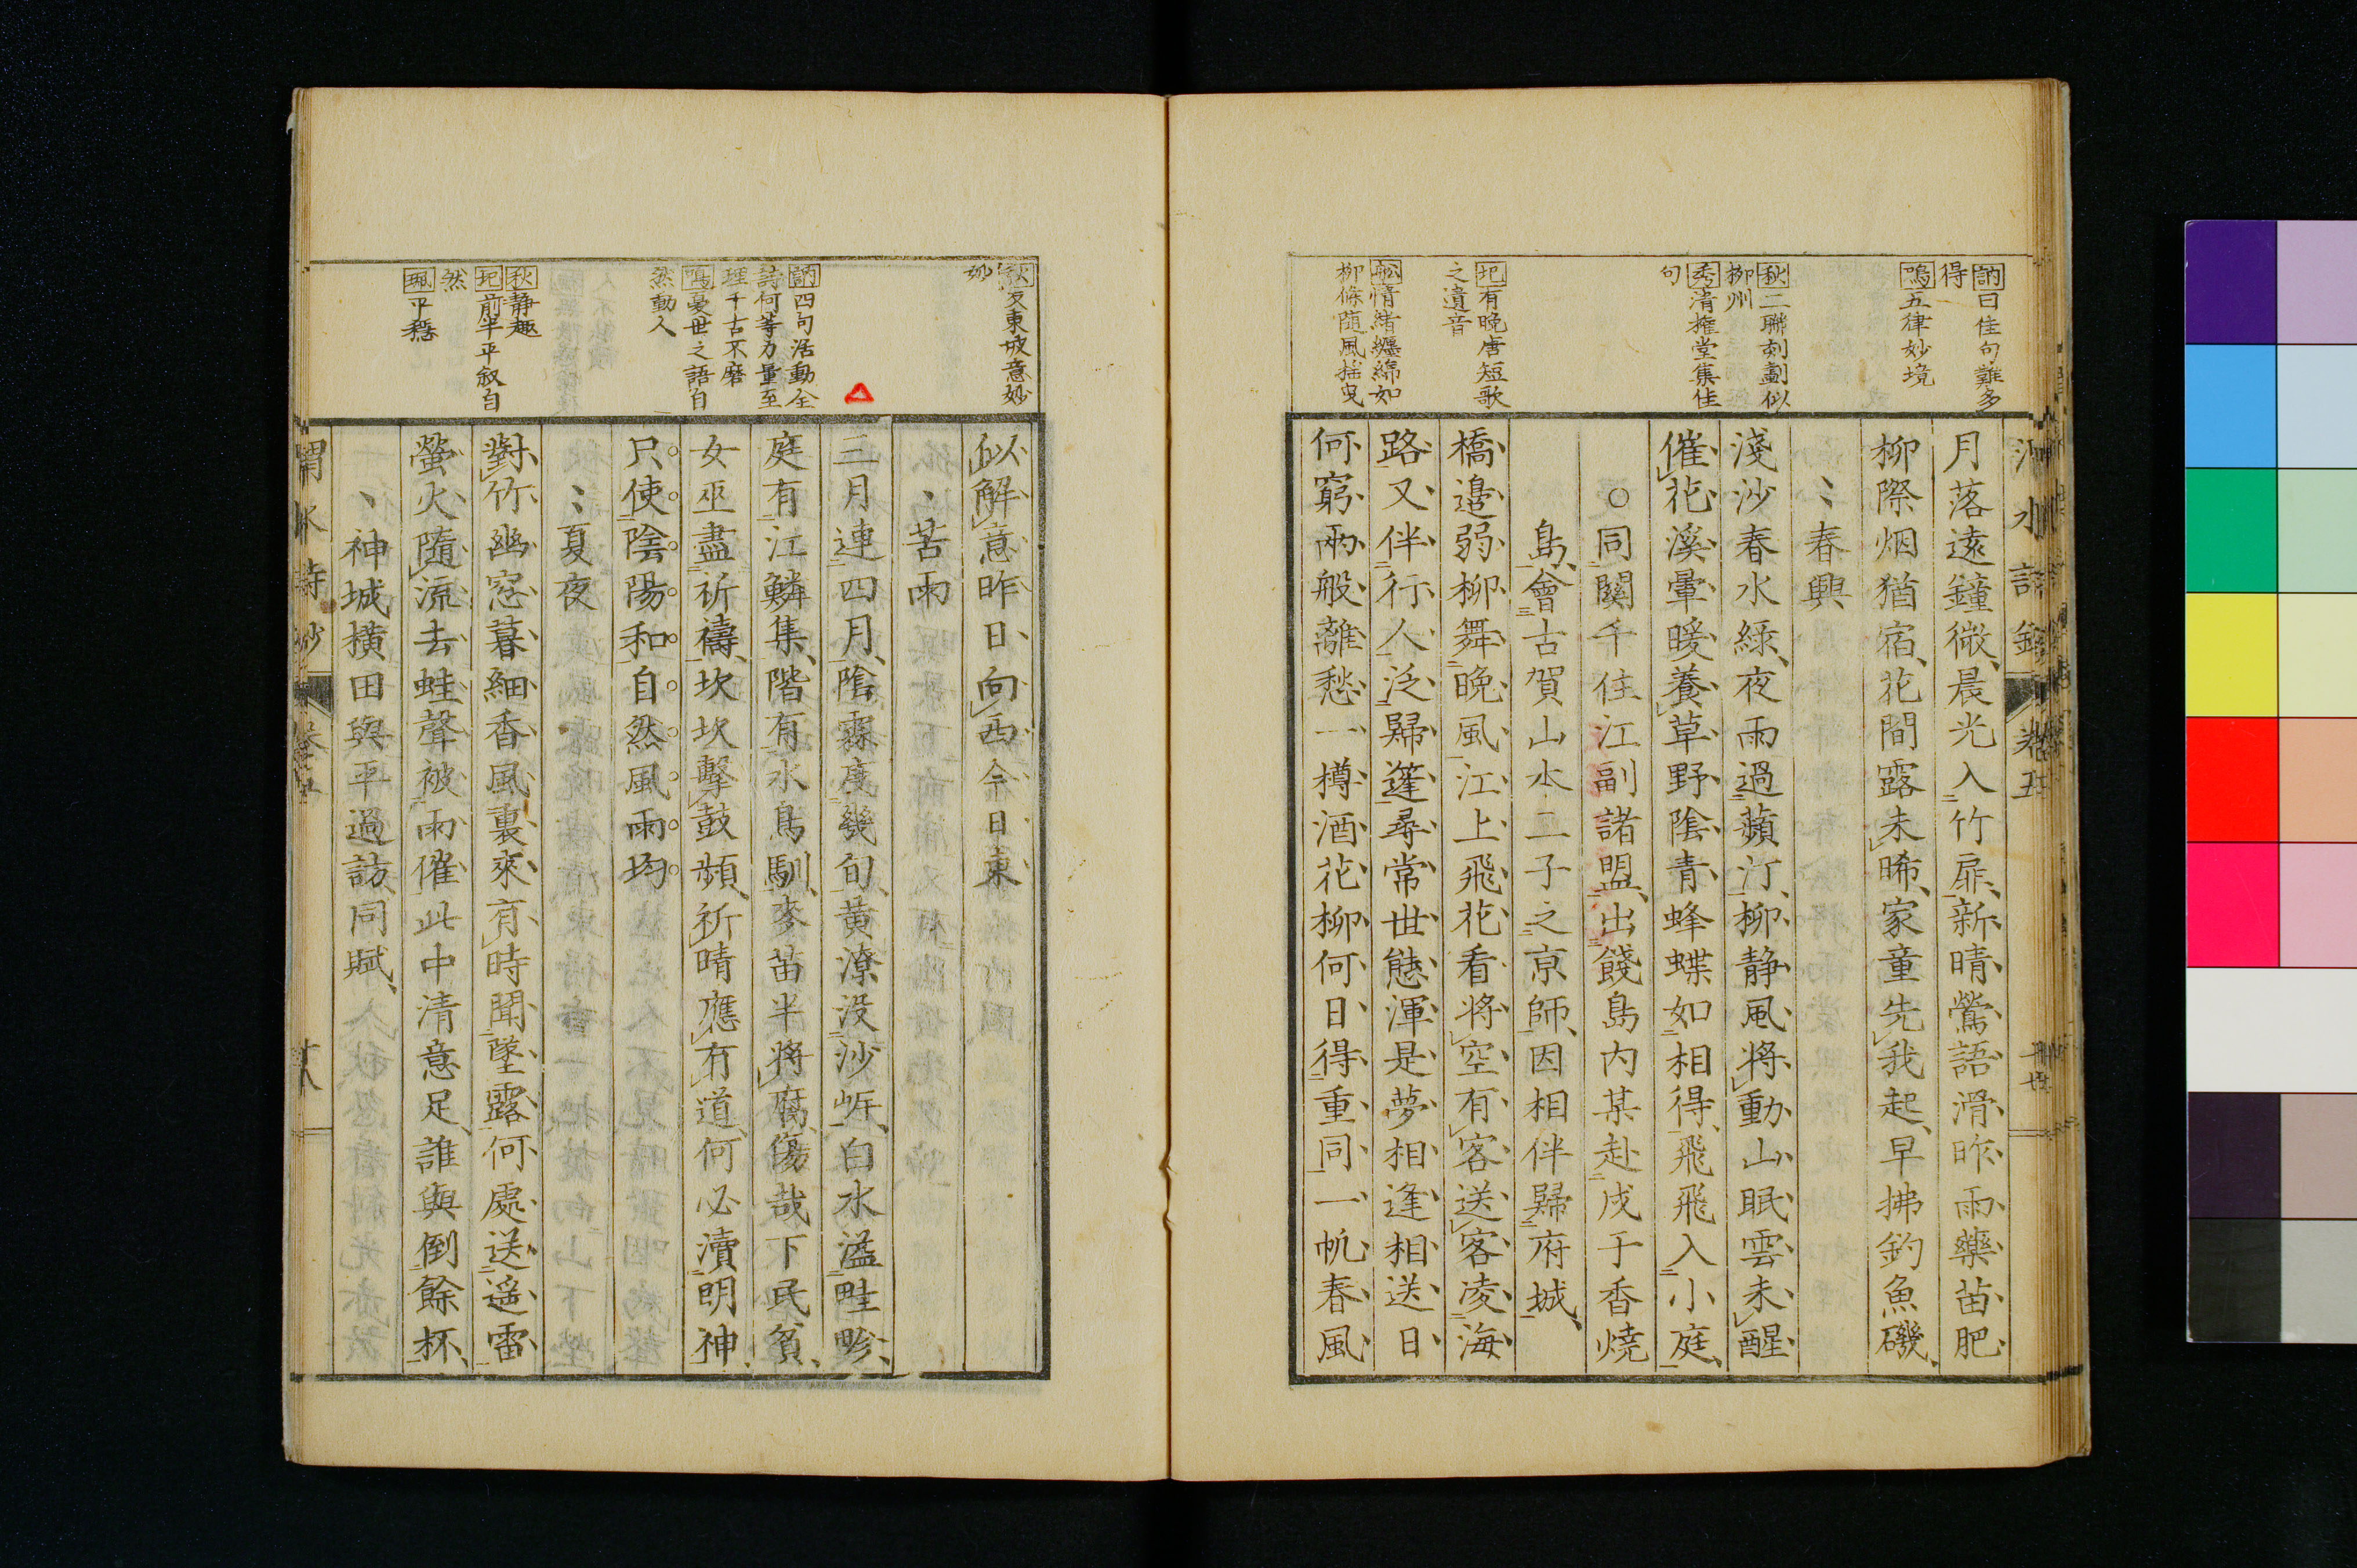 訥曰佳句難多
得
鳴五律妙境
秋二聯刻劃似
柳州
秀清推堂集佳
句
圯有晚唐短歌
之遺音
松情緒纏綿如
柳條隨風搖曳
月落遠鐘微、晨光入竹扉、新晴鶯語滑昨雨藥苗肥
柳際烟猶宿、花間露未晞、家童先我起、早拂釣魚磯、
〻春興
淺沙春水綠、夜雨過蘋汀、柳静風將動山眠雲未醒
催花溪暈暖養草野陰青蜂蝶如相得、飛飛入小庭、
○同關千住江副諸盟、出餞島内某赴戍于香燒
島、會古賀山水二子之京師、因相伴歸府城、
橋邊弱柳舞晩風江上飛花看將空有客送客凌海
路又伴行人泛歸篷尋常世態渾是夢相逢相送日
何窮兩般離愁一樽酒花柳何日得重同一帆春風
卷五
秋反東坡意妙
妙
訥四句活動全
詩何等力量至
理千古不磨
鳴憂世之語自
然動人
秋静趣
圯前半平叙自
然
珮平穩
似解意昨日向西今日東
、苦雨
三月連四月、陰霖度幾旬、黄潦没沙岸、白水溢畦畛、
庭有江鱗集、階有水鳥馴、麥苗半將腐、傷哉下民貧、
女巫盡祈禱、坎坎擊鼓頻、祈晴應有道、何必瀆明神、
只使陰陽和自然風雨均
〻夏夜
對竹幽窓暮細香風裏來有時聞墜露何處送遥雷
螢火隨流去蛙聲被雨催此中清意足、誰與倒餘杯、
、神城横田與平過訪、同賦、